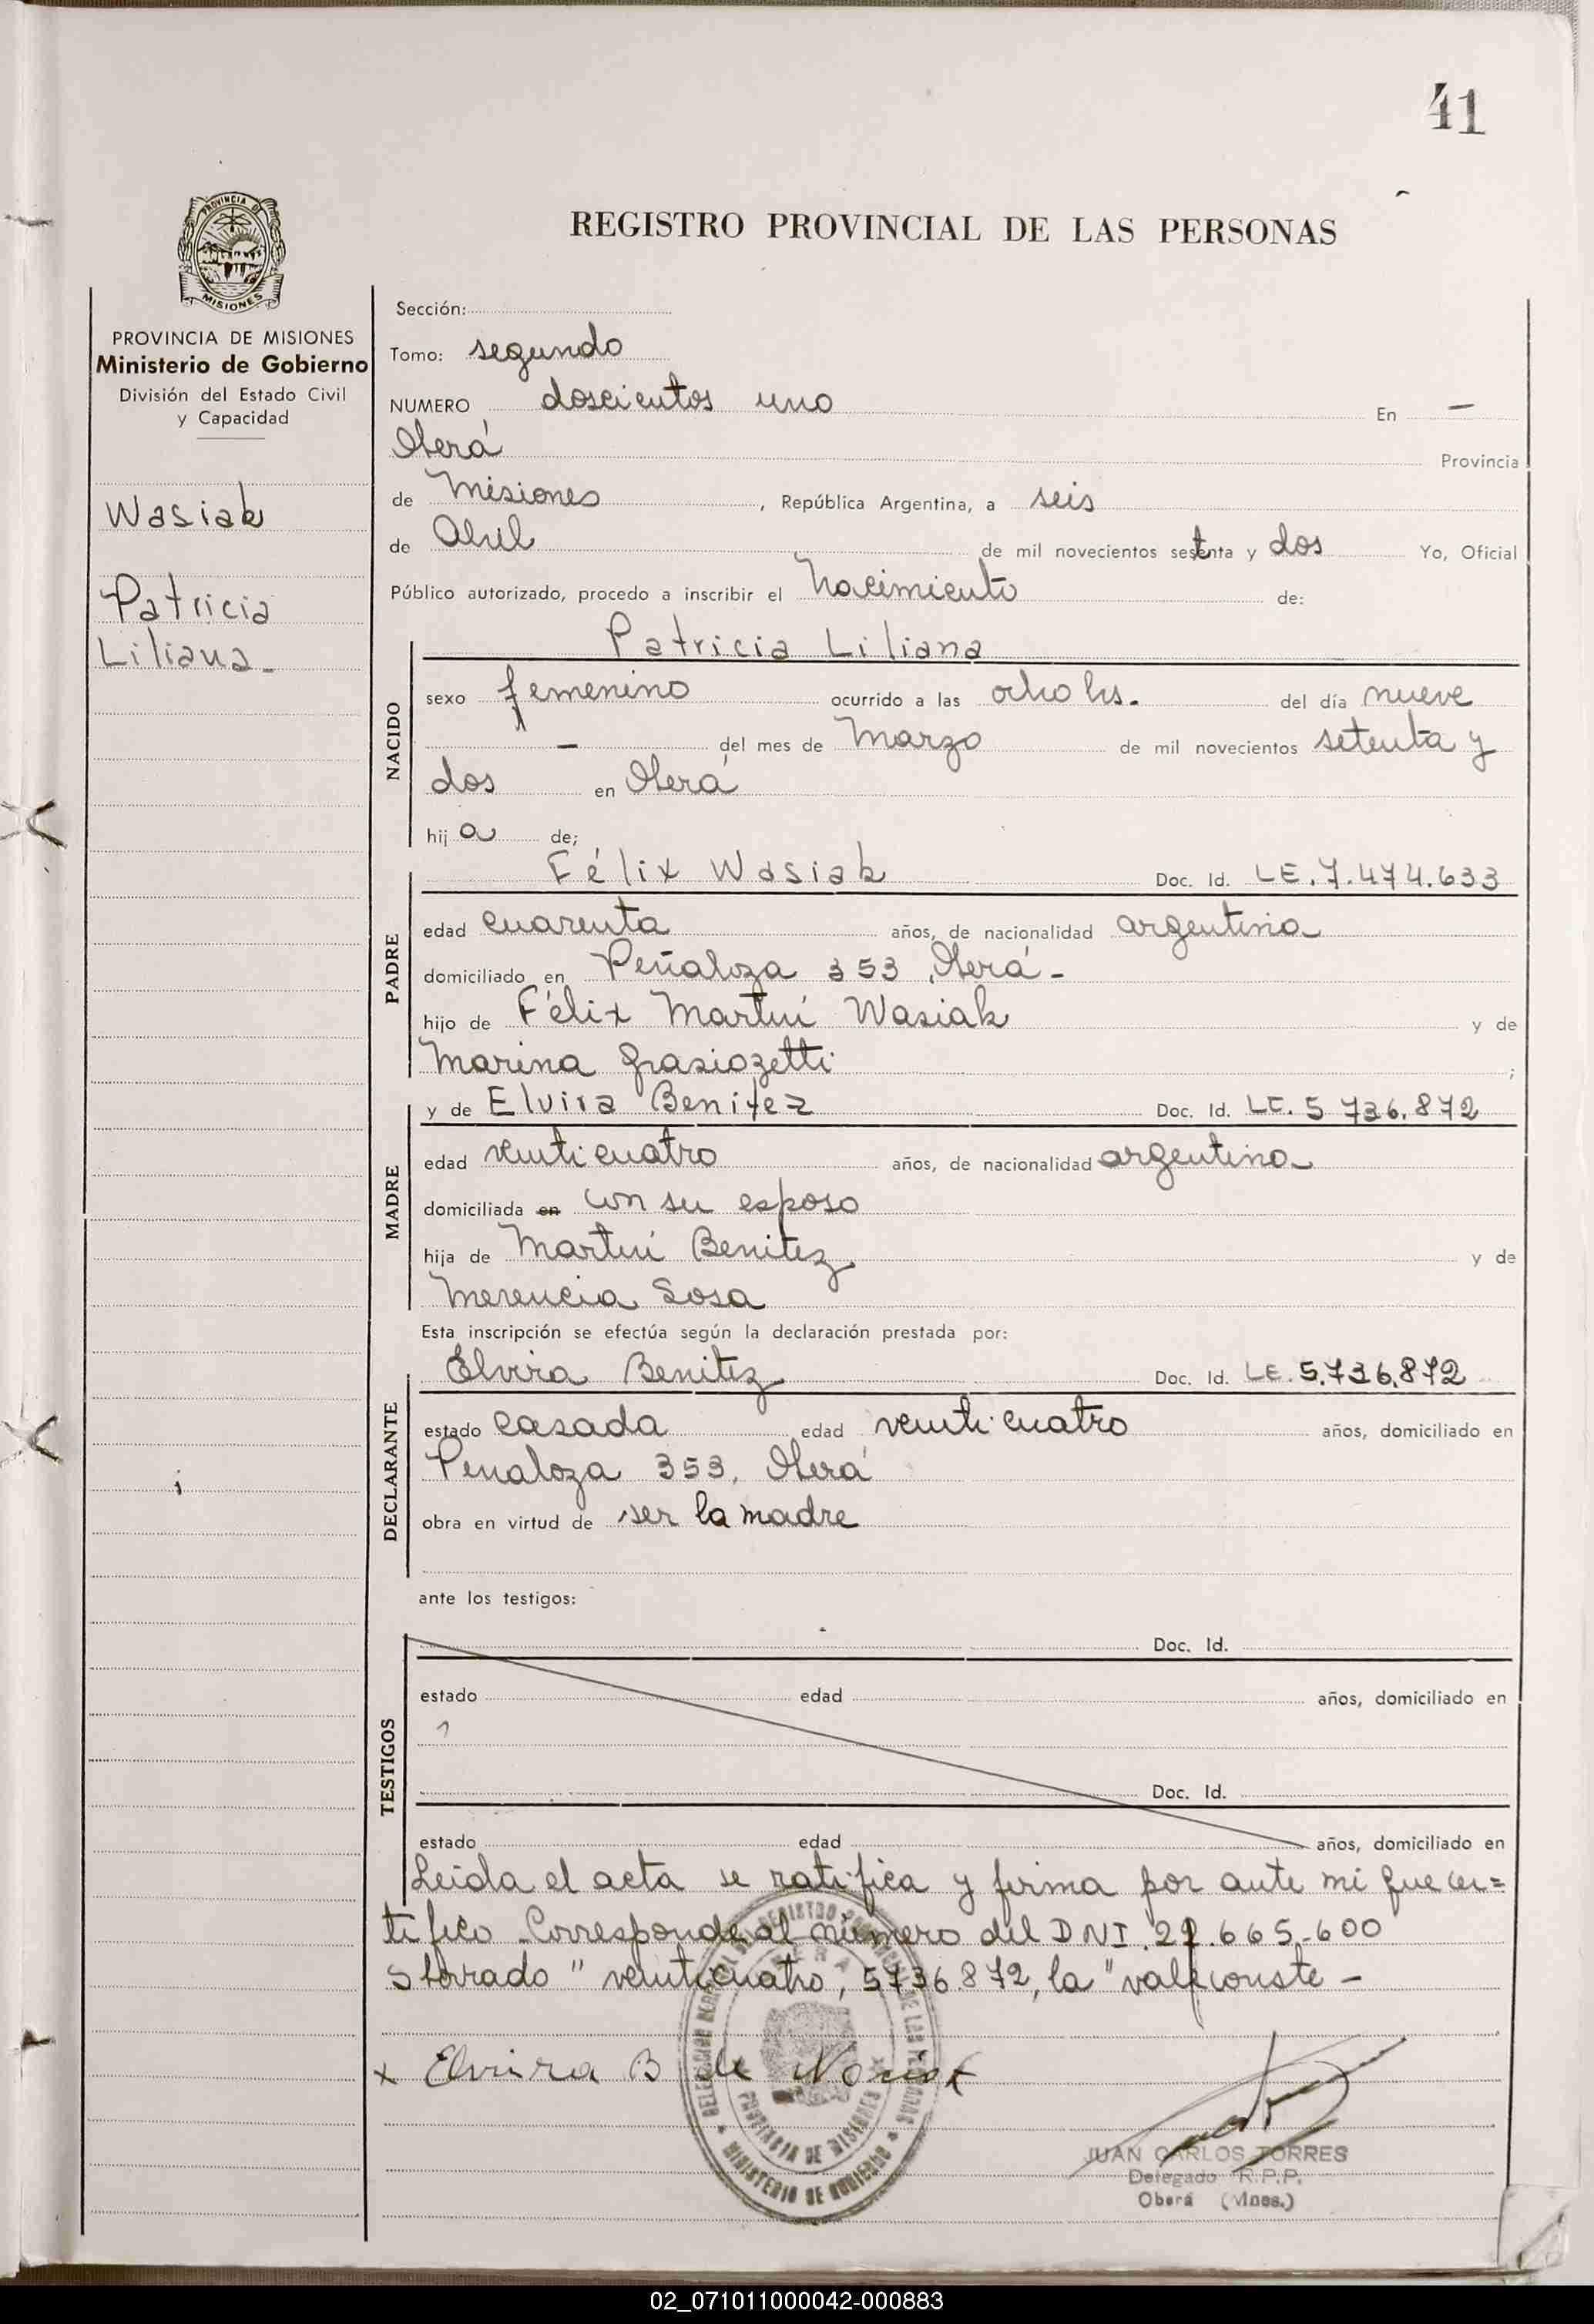 41
PROVINCIA DE
MISIONES
REGISTRO PROVINCIAL DE LAS PERSONAS
PROVINCIA DE MISIONES
Ministerio de Gobierno
División del Estado Civil
y Capacidad
Wasiak
Patricia
Liliana-
Sección:
Tomo: segundo
NUMERO doscientos uno En —
Oberá Provincia
de Misiones, República Argentina, a seis
de Abril de mil novecientos setenta y dos Yo, Oficial
Público autorizado, procedo a inscribir el Nacimiento de:
NACIDO
Patricia Liliana
sexo femenino ocurrido a las ocho hs. del día nueve
— del mes de Marzo de mil novecientos setenta y
dos en Oberá
hij a de;
PADRE
Félix Wasiak Doc. Id. LE. 7.474.633
edad cuarenta años, de nacionalidad argentina
domiciliado en Peñaloza 353, Oberá-
hijo de Félix Martín Wasiak y de
Marina Grasiozetti ;
MADRE
y de Elvira Benitez Doc. Id. LC. 5 736.872
edad veinticuatro años, de nacionalidad argentina
domiciliada en con su esposo
hija de Martín Benitez y de
Merencia Sosa
Esta inscripción se efectúa según la declaración prestada por:
DECLARANTE
Elvira Benitez Doc. Id. LE. 5.736.872
estado casada edad veinticuatro años, domiciliado en
Penaloza 353, Oberá
obra en virtud de ser la madre
ante los testigos:
TESTIGOS
Doc. Id.
estado edad años, domiciliado en
Doc. Id.
estado edad años, domiciliado en
Leida el acta se ratifica y firma por ante mi que cer=
tifico. Corresponde al número del DNI. 22.665.600
S borrado " veinticuatro, 5736.872, la " vale conste -
x Elvira B de
PROVINCIA DE MISIONES
MINISTERIO DE GOBIERNO
JUAN CARLOS TORRES
Delegado R.P.P.
Oberá (Mnes.)
02_071011000042-000883